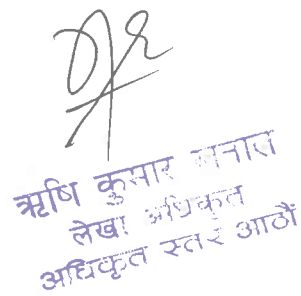 ऋषि कुमार
लेखा अधिकृत
अधिकृत स्तर आठौं